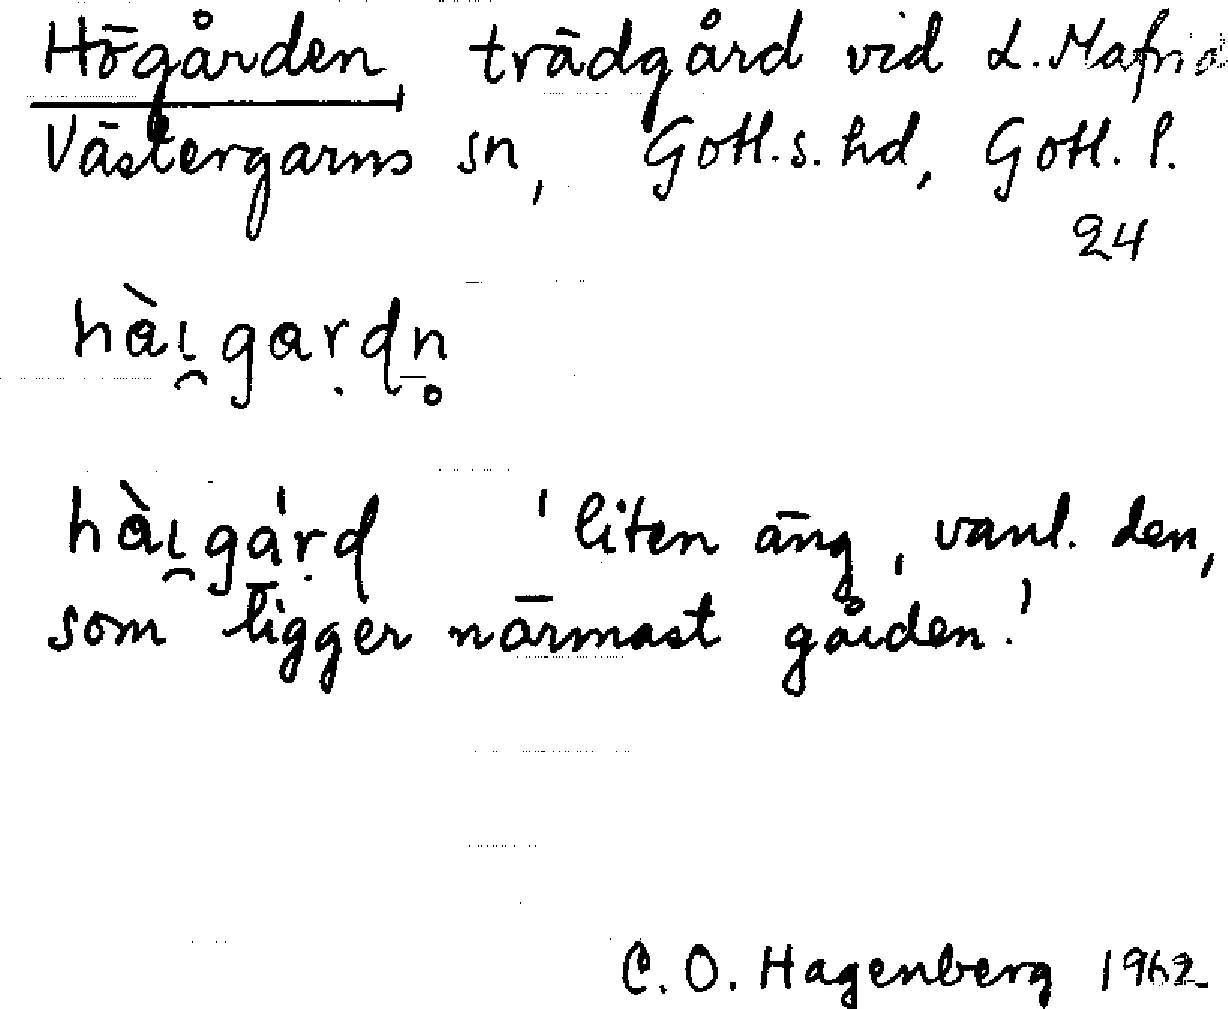 Högården, trädgård vid L. Mafrids
Västergarns sn, Gotl. s. hd, Gotl. l.
24
hài̯gaṛdn̥
hài̯gáṛd 'liten äng, vanl. den,
som ligger närmast gården.'
C. O. Hagenberg 1962